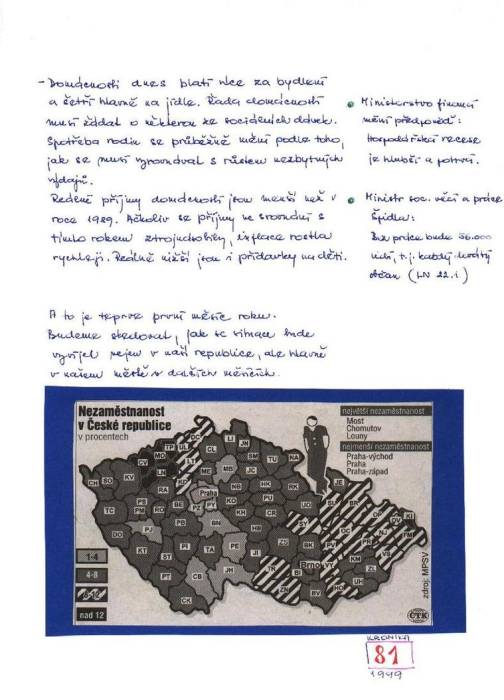 - Domácnosti dnes platí více za bydlení
a šetří hlavně na jídle. Řada domácností
musí žádat o některou ze sociálních dávek.
Spotřeba rodin se průběžně mění podle toho,
jak se musí vyrovnávat s růstem nezbytných
výdajů.
Reálné příjmy domácností jsou menší než v
roce 1989. Ačkoliv se příjmy ve srovnání s
tímto rokem ztrojnásobily, inflace rostla
rychleji. Reálně nižší jsou i přídavky na děti.
Ministerstvo financí
mění předpověď:
Hospodářská recese
je hlubší a potrvá.
Ministr soc. věcí a práce
Špidla:
Bez práce bude
lidí, t.j. každý
občan (LN 22.1.)
A to je teprve první měsíc roku.
Budeme sledovat, jak se situace bude
vyvíjet nejen v naší republice, ale hlavně
v našem městě v dalších měsících.
Nezaměstnanost
v České republice
v procentech
největší nezaměstnanost
Most
Chomutov
Louny
nejmenší nezaměstnanost
Praha-východ
Praha
Praha-západ
Praha
Brno
1-4
4-8
8-12
nad 12
zdroj: MPSV
ČTK
KRONIKA
81
1999